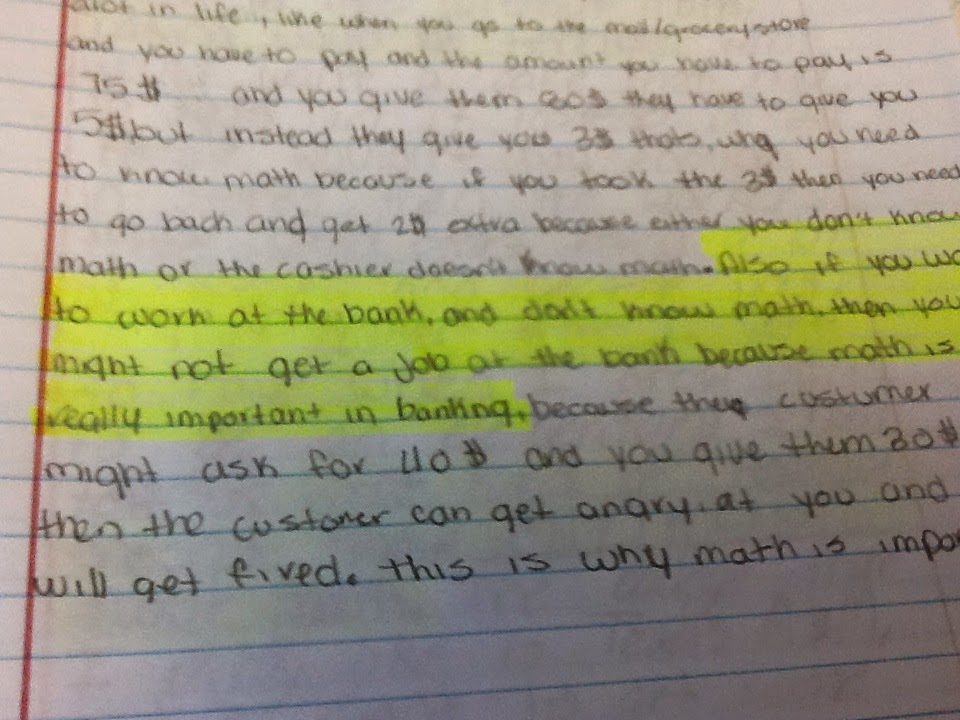 alot in life, like when you go to the mall/grocery store
and you have to pay and the amount you have to pay is
75$ and you give them 80$ they have to give you
5$ but instead they give you 3$ thats, why you need
to know math because if you took the 3$ then you need
to go back and get 2$ extra because either you don't know
math or the cashier doesn't know math. Also if you wa
to work at the bank, and don't know math, then you
might not get a job at the bank because math is
really important in banking, because they costumer
might ask for 40$ and you give them 20$
then the customer can get angry at you and
will get fired. this is why math is impo